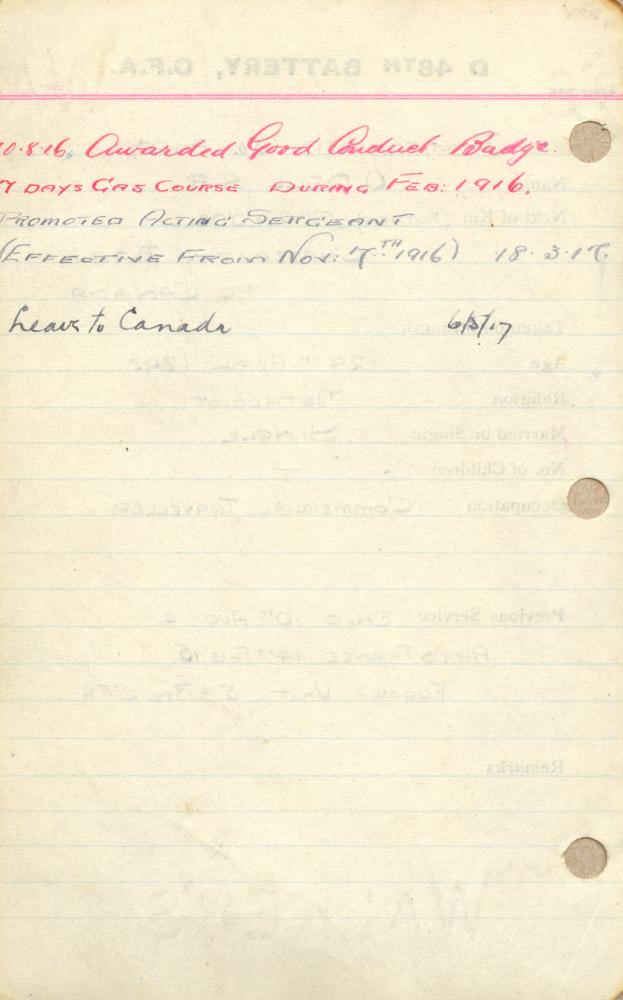 10.8.16. Awarded Good Conduct Badge.
7 DAYS GAS COURSE DURING FEB: 1916.
PROMOTED ACTING SERGEANT
(EFFECTIVE FROM NOV: 7TH 1916) 18.3.17.
Leave to Canada 6/5/17